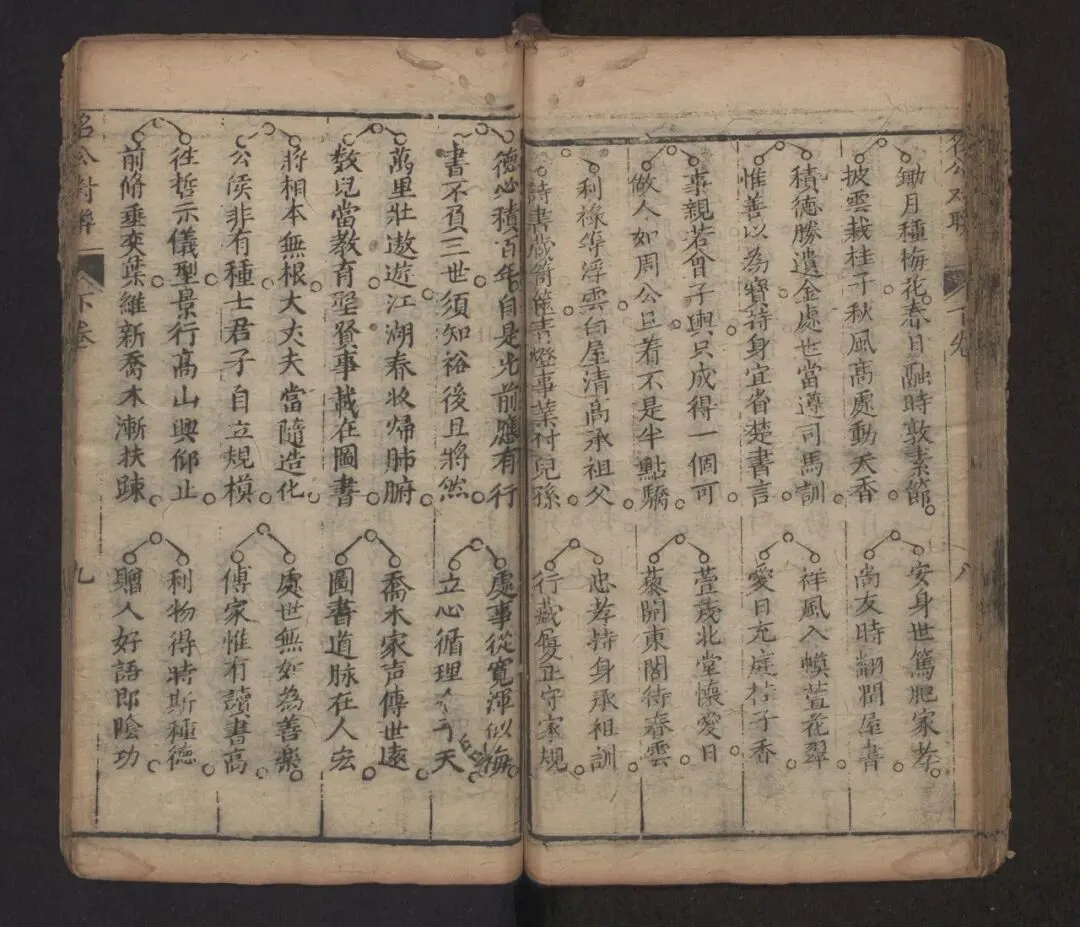 名公对聯
下卷
八
鋤月種梅花春日融時敦素節
披雲栽桂子秋風高處動天香
積德勝遺金處世當遵司馬訓
惟善以為寳持身宜省楚書言
事親若曾子輿只成得一個可
做人如周公旦着不是半點驕
利祿等浮雲白屋清高承祖父
詩書藏笥箧青燈事業付兒孫
安身世篤肥家孝
尚友時翻潤屋書
祥風入幙萱花翠
愛日充庭桂子香
萱茂北堂懷愛日
藜開東閣待春雲
忠孝持身承祖訓
行藏履正守家規
德心積百年自是光前應有行
書不負三世須知裕後且將然
萬里壯遨遊江湖春收帰肺腑
数兒當教育聖賢事載在圖書
將相本無根大丈夫當隨造化
公侯非有種士君子自立規模
往哲示儀型景行高山興仰止
前脩垂奕葉維新喬木漸扶踈
處事從寛渾似海
立心循理 天
喬木家声傳世遠
圖書道脉在人宏
處世無如為善樂
傅家惟有讀書高
利物得時斯種德
贈人好語即陰功
名公對聯
下卷
九